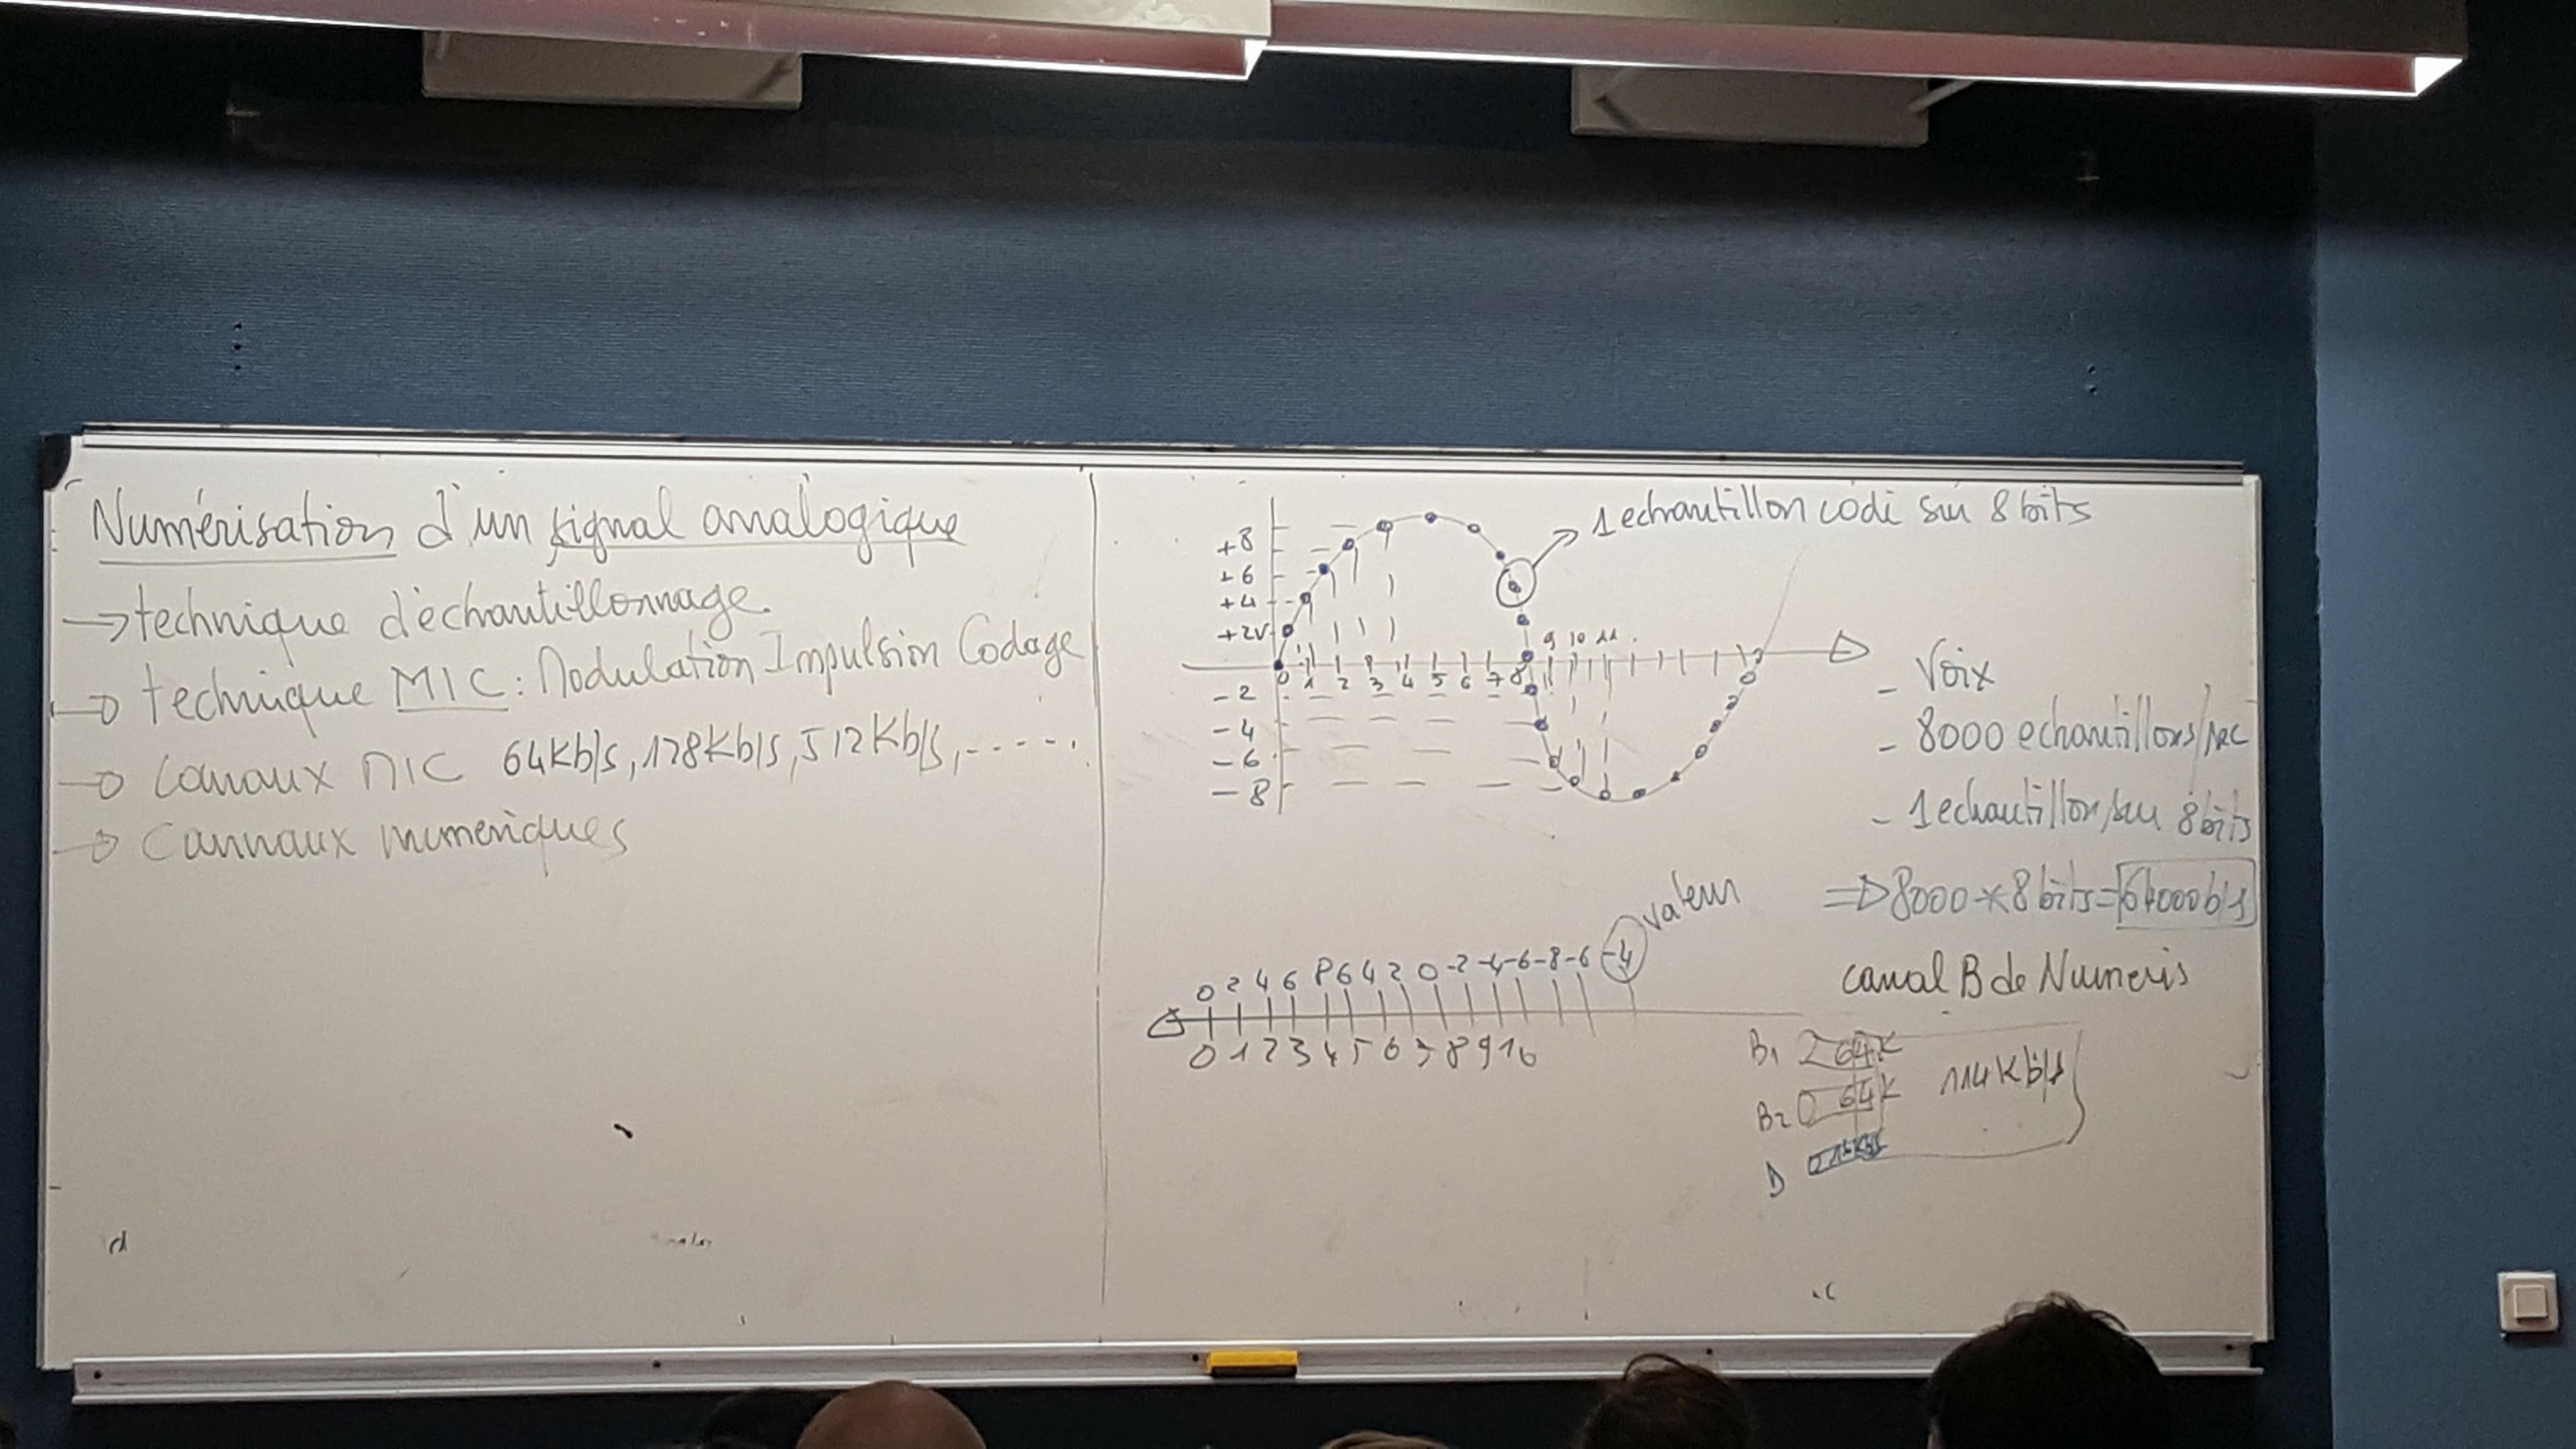 Numérisation d'un signal analogique
→ technique d'échantillonnage.
→ technique MIC : Modulation Impulsion Codage
→ Canaux MIC 64Kb/s, 128Kb/s, 512Kb/s, -----.
→ Cannaux numériques
1 echantillon codé sur 8 bits
+8
+6
+4
+2V
0 1 2 3 4 5 6 7 8 9 10 11
-2
-4
-6
-8
- Voix
- 8000 echantillons/sec
- 1 echantillon/sur 8 bits
=> 8000 * 8 bits = 64000 b/s
canal B de Numeris
valeur
0 2 4 6 8 6 4 2 0 -2 -4 -6 -8 -6 -4
0 1 2 3 4 5 6 7 8 9 10
B1 64K
B2 64K
114 Kb/s
D